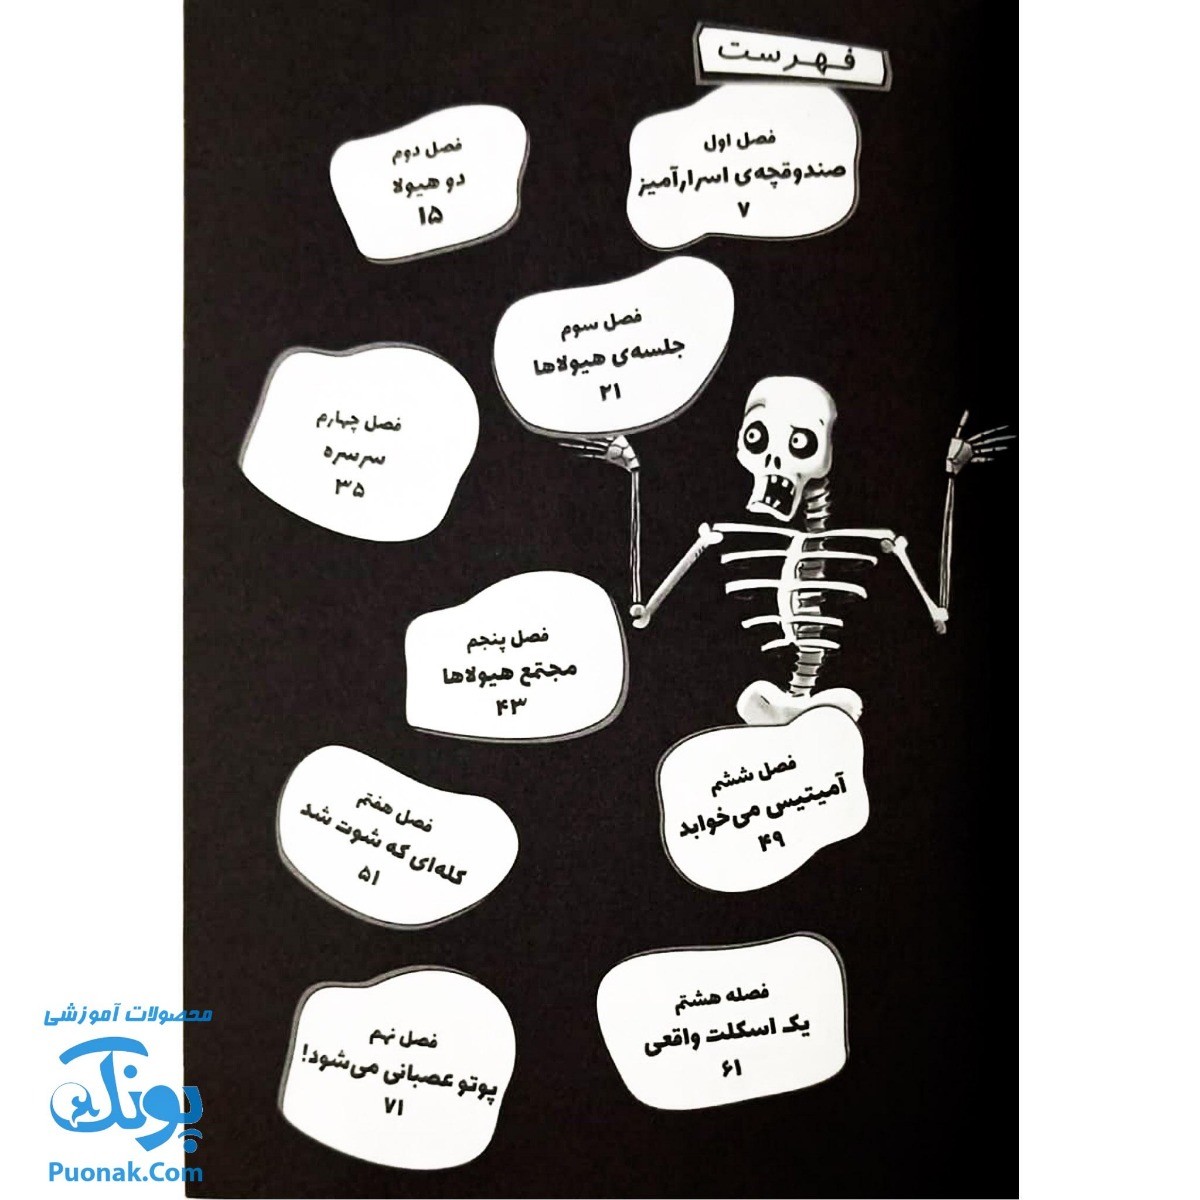 فهرست
فصل اول
صندوقچه‌ی اسرارآمیز
۷
فصل دوم
دو هیولا
۱۵
فصل سوم
جلسه‌ی هیولاها
۲۱
فصل چهارم
سرسره
۳۵
فصل پنجم
مجتمع هیولاها
۴۳
فصل ششم
آمیتیس می‌خوابد
۴۹
فصل هفتم
کله‌ای که شوت شد
۵۱
فصله هشتم
یک اسکلت واقعی
۶۱
فصل نهم
پوتو عصبانی می‌شود!
۷۱
محصولات آموزشی
پونک
Puonak.Com